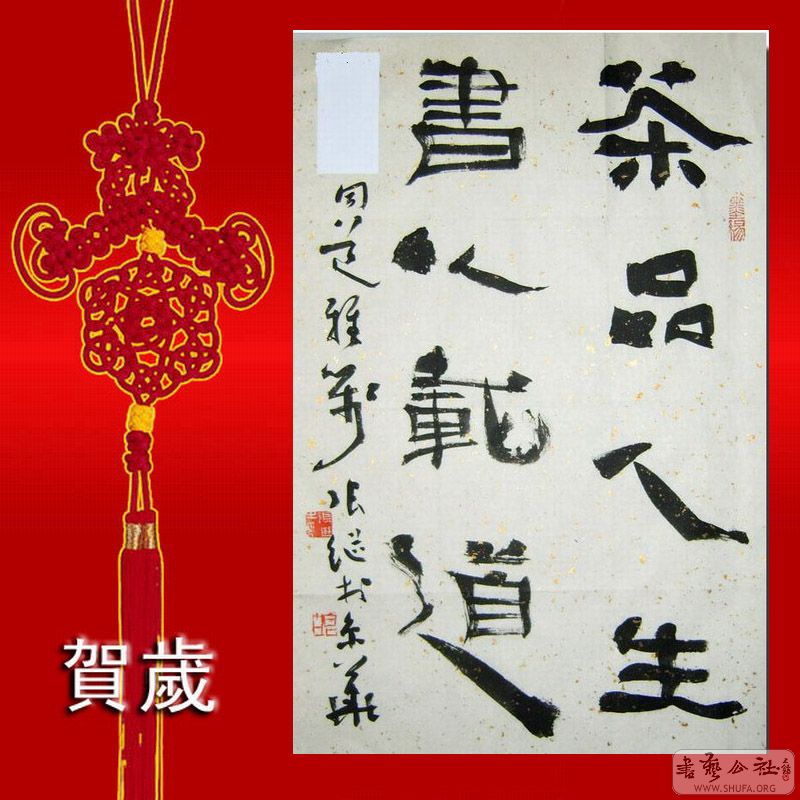 茶品人生
書以載道
同道雅鑒 張继於京華
賀歲
書藝公社
WWW.SHUFA.ORG